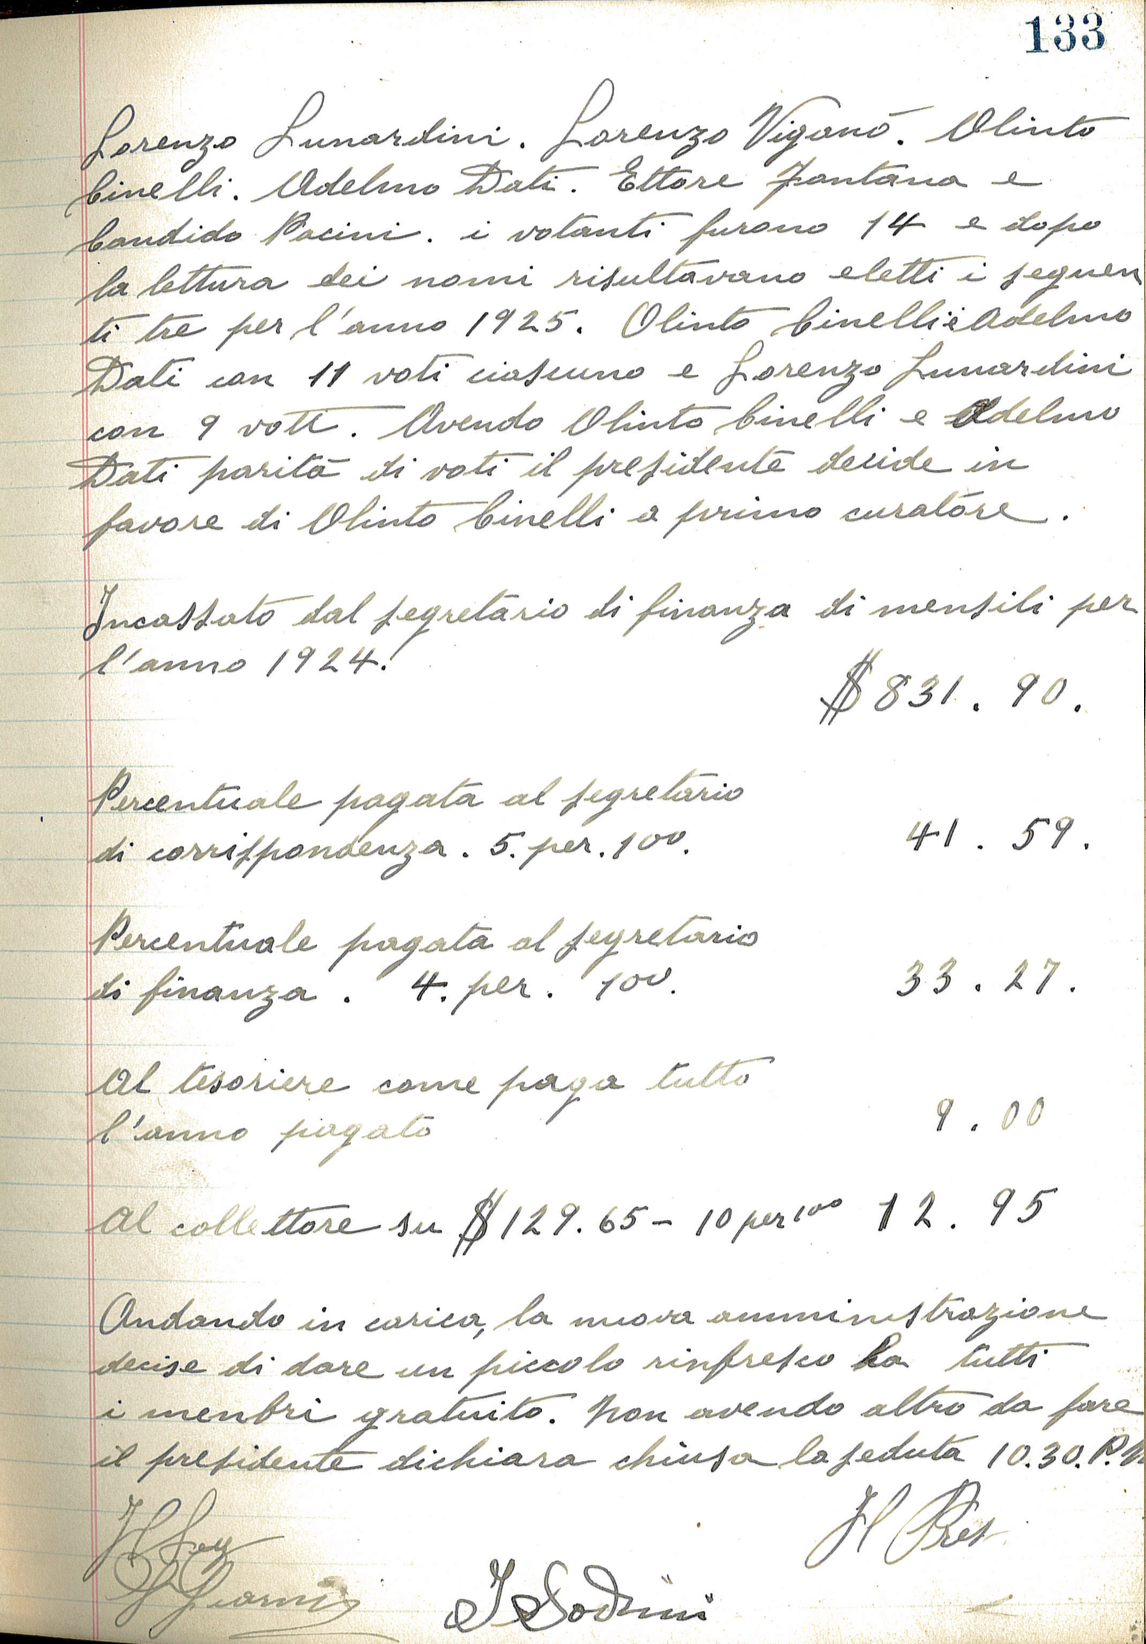 133
Lorenzo Lunardini. Lorenzo Viganò. Olinto
Cinelli. Adelmo Dati. Ettore Fontana e
Candido Pacini. i votanti furono 14 e dopo
la lettura dei nomi risultavano eletti i seguen
ti tre per l'anno 1925. Olinto Cinelli e Adelmo
Dati con 11 voti ciascuno e Lorenzo Lunardini
con 9 voti. Avendo Olinto Cinelli e Adelmo
Dati parità di voti il presidente decide in
favore di Olinto Cinelli a primo curatore.
Incassato dal segretario di finanza di mensili per
l'anno 1924.
$831.90.
Percentuale pagata al segretario
di corrispondenza. 5. per. 100. 41.59.
Percentuale pagata al segretario
di finanza. 4. per. 100. 33.27.
Al tesoriere come paga tutto
l'anno pagato 9.00
Al collettore su $129.65 - 10 per 100 12.95
Andando in carica, la nuova amministrazione
decise di dare un piccolo rinfresco a tutti
i menbri gratuito. Non avendo altro da fare
il presidente dichiara chiusa la seduta 10.30. P.M
Il Pres
Il Seg